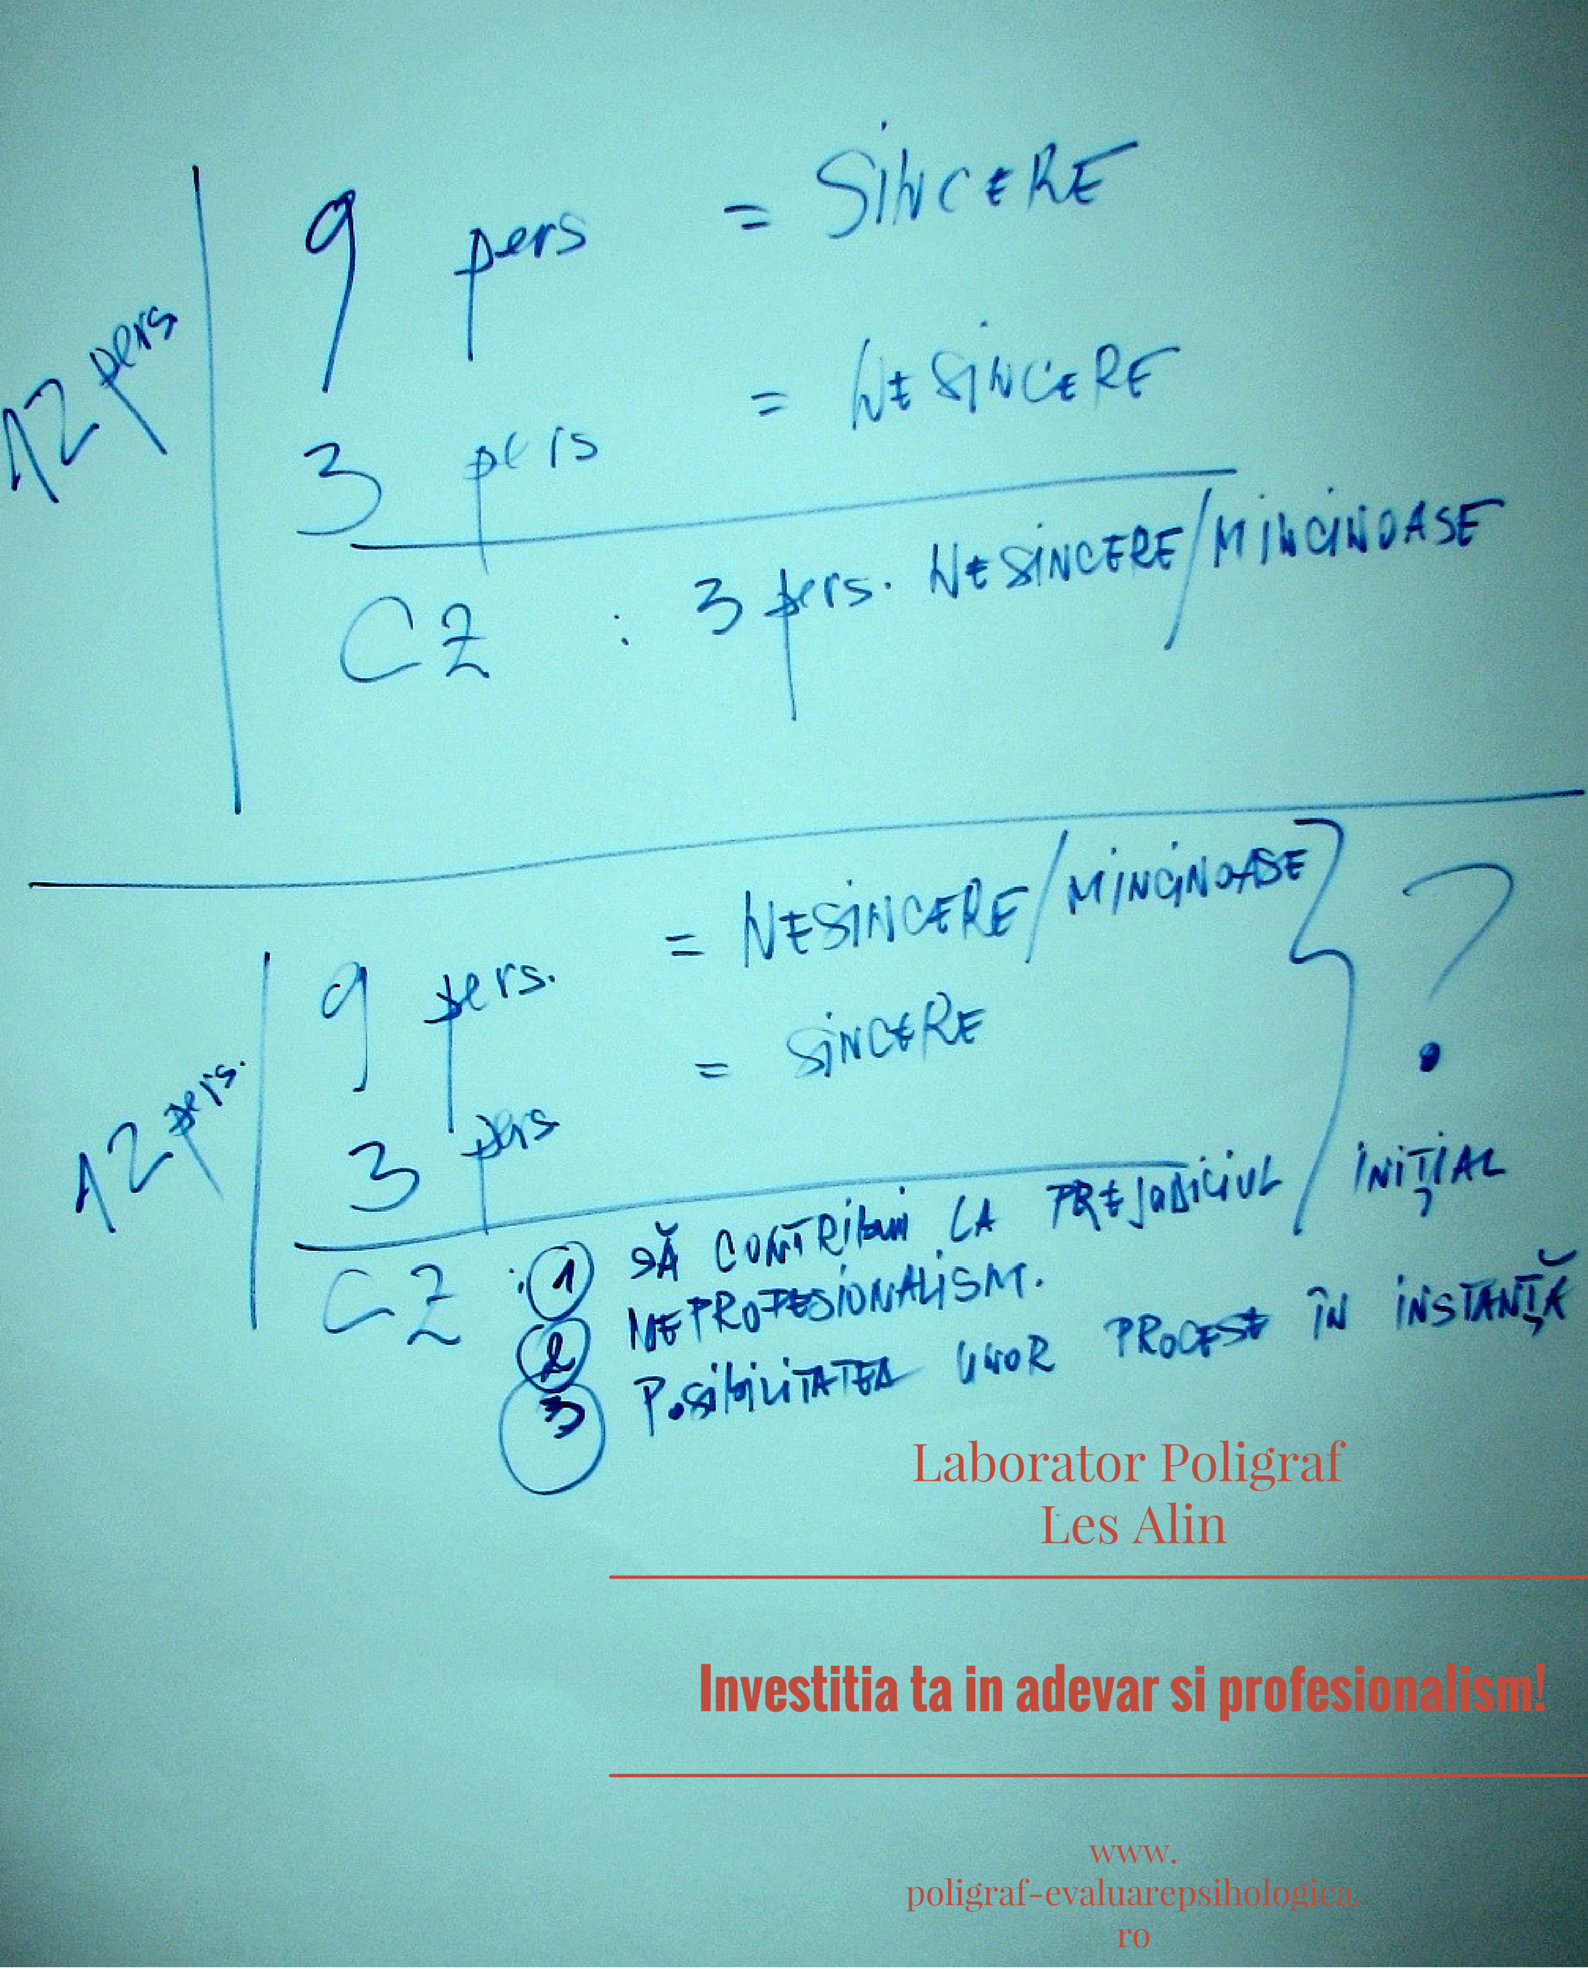 12 pers
9 pers = SINCERE
3 pers = NESINCERE
CZ : 3 pers. NESINCERE/MINCINOASE
12 pers.
9 pers. = NESINCERE/MINCINOASE
3 pers = SINCERE
?
CZ : 1 SĂ CONTRIBUI LA PREJUDICIUL INIȚIAL
2 NEPROFESIONALISM.
3 POSIBILITATEA UNOR PROCESE ÎN INSTANȚĂ
Laborator Poligraf
Les Alin
Investitia ta in adevar si profesionalism!
www.
poligraf-evaluarepsihologica.
ro